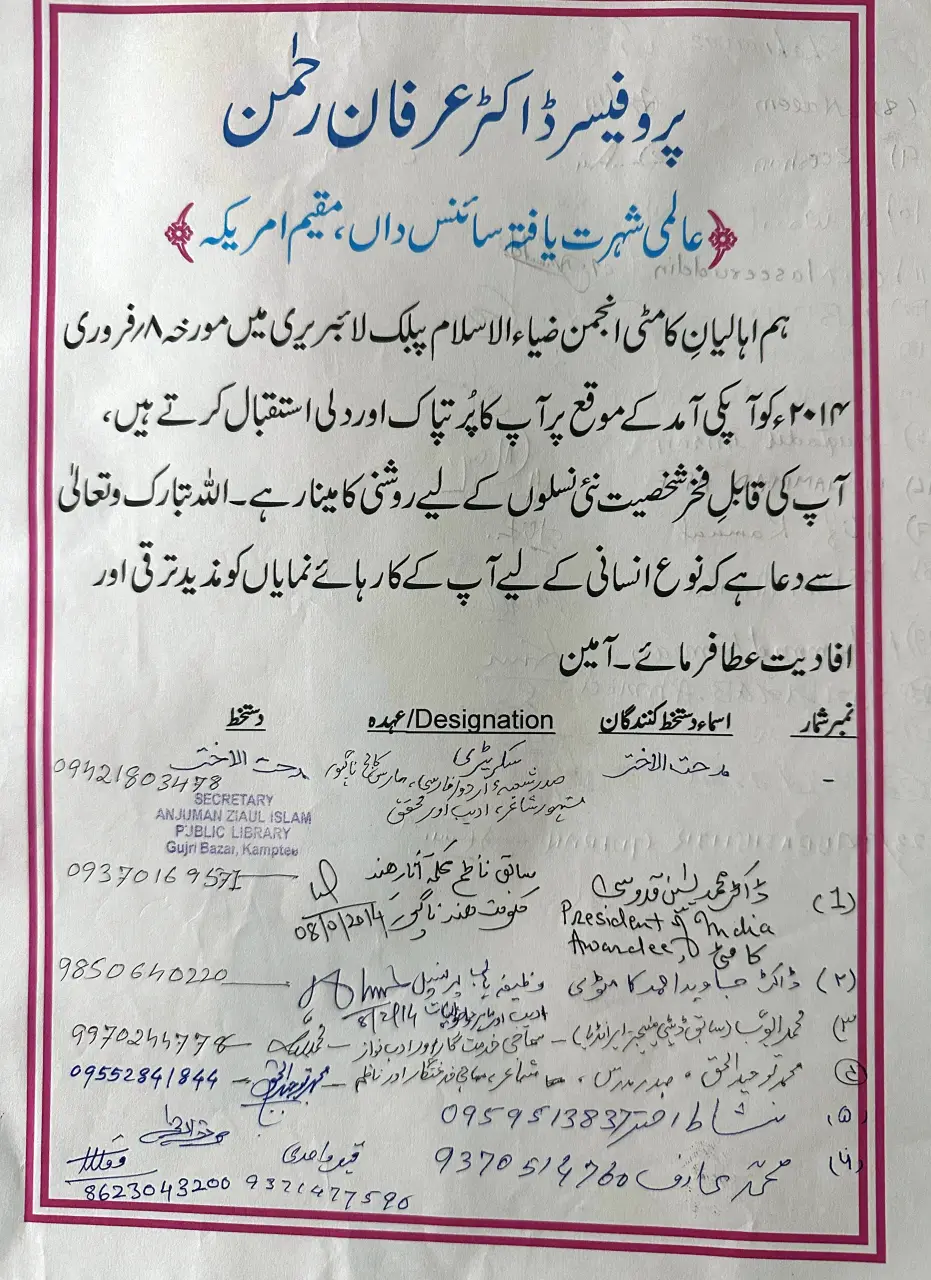 پروفیسر ڈاکٹر عرفان رحمٰن
عالمی شہرت یافتہ سائنس داں، مقیم امریکہ
ہم اہالیانِ کامٹی انجمن ضیاء الاسلام پبلک لائبریری میں مورخہ ۸؍فروری
۲۰۱۴ء کو آپکی آمد کے موقع پر آپ کا پُرتپاک اور دلی استقبال کرتے ہیں،
آپ کی قابلِ فخر شخصیت نئی نسلوں کے لیے روشنی کا مینار ہے۔ اللہ تبارک وتعالیٰ
سے دعا ہے کہ نوع انسانی کے لیے آپ کے کارہائے نمایاں کو مذید ترقی اور
افادیت عطا فرمائے۔ آمین
نمبر شمار اسماء دستخط کنندگان عہدہ/Designation دستخط
- مدحت الاختر سکریٹری مدحت الاختر
صدر شعبۂ اردو فارسی، مارس کالج ناگپور 09421803478
مشہور شاعر، ادیب اور محقق
SECRETARY
ANJUMAN ZIAUL ISLAM
PUBLIC LIBRARY
Gujri Bazar, Kamptee
(1) ڈاکٹر محمد یٰسین قدوسی سابق ناظم محکمہ آثار ھند 09370169571
President of India حکومت ھند ناگپور
Awardee کامٹی
(۲) ڈاکٹر جاوید احمد کامٹوی وظیفہ یاب پرنسپل 9850640220
ادیب اور 8/2/14
(۳ محمد ایوب (سابق ڈپٹی منیجر ایر انڈیا) - سماجی خدمت گار اور ادب نواز - 9970244778
(۴) محمد توحید الحق، صدر مدرس، شاعر، سماجی خدمتگار اور ناظم - محمد توحید الحق - 09552841844
(۵) نشاط اختر 0959513837
(۶) محمد عارف 9370514760
8623043200 9371477590